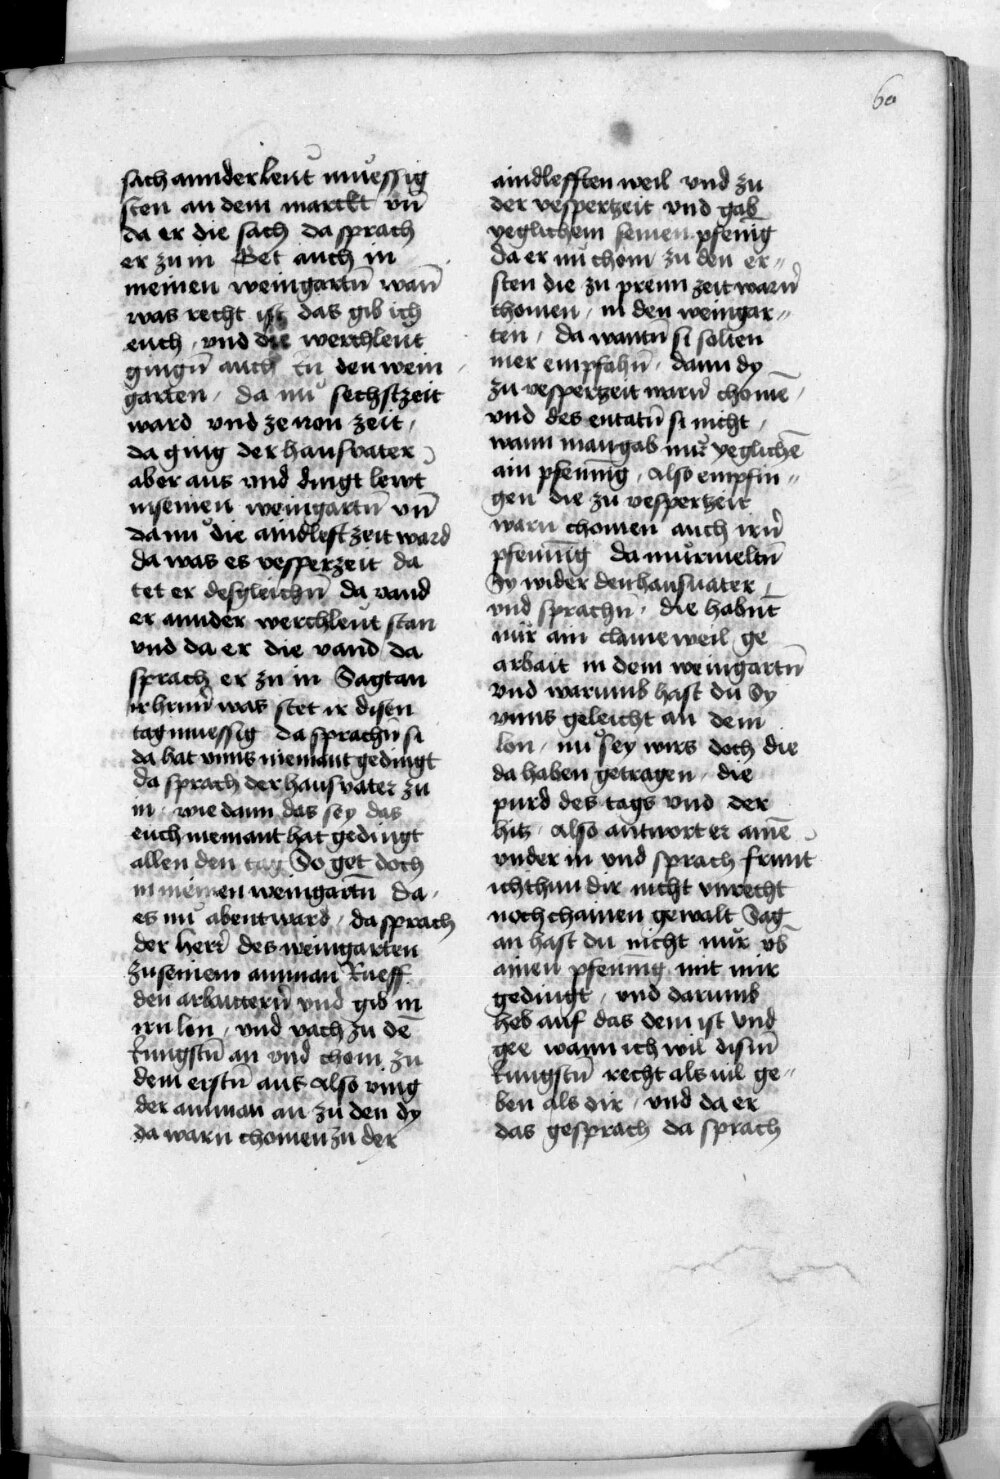 60
sach annder leut muessig
sten an dem marckt vn̄
da er die sach da sprach
er zu in Get auch in
meinen weingartn̄ wan̄
was recht ist das gib ich
euch / vnd die werchleut
gingn̄ auch in den wein
garten / da nu sechstzeit
ward vnd ze non zeit /
da ging der hausvater
aber aus vnd dingt lewt
in seinen weingartn̄ vn̄
da nu die aindleft zeit ward
da was es vesperzeit da
tet er desgleichn̄ da vand
er annder werchleut stan
vnd da er die vand da
sprach er zu in Sagt an
ir herrn̄ was stet ir disen
tag muessig da sprachn̄ si
da hat vnns niemant gedingt
da sprach der hausvater zu
in / wie dann das sey das
euch niemant hat gedingt
allen den tag So get doch
in meinen weingartn̄ da /
es nu abent ward / da sprach
der herr des weingarten
zu seinem amman Rueff
den arbaittern̄ vnd gib in
irn lon / vnd vach zu de̅
kungstn̄ an vnd chom zu
dem erstn̄ aus Also ving
der amman an zu den dy
da warn chomen zu der
aindlefften weil vnd zu
der vesperzeit vnd gab
yeglichem seinen pfenig
da er nu chom zu den er〃
sten die zu premn zeit warn̄
chomen / in den weingar〃
ten / da wantn̄ si solten
mer empfahn̄ / dann dy
zu vesperzeit warn̄ chome̅ /
vnd des entatn̄ si nicht /
wann man gab nur yegliche̅
ain pfenning / Also empfin〃
gen die zu vesperzeit
warn chomen auch irn̄
pfenning da murmeltn̄
Sy wider den hausuater
vnd sprachn̄ / die habnt
nur ain claine weil ge
arbait in dem weingartn̄
vnd warumb hast du Sy
vnns geleicht an dem
lon / nu sey wirs doch die
da haben getragen / die
purd des tags vnd der
hitz / Also antwort er aine̅
vnder in vnd sprach frunt
ich thun dir nicht vnrecht
noch chainen gewalt Sag
an hast du nicht nur vb̄
ainen pfenning mit mir
gedingt / vnd darumb
heb auf das dein ist vnd
gee wann ich wil dism̄
kungstn̄ recht als uil ge〃
ben als dir / vnd da er
das gesprach da sprach